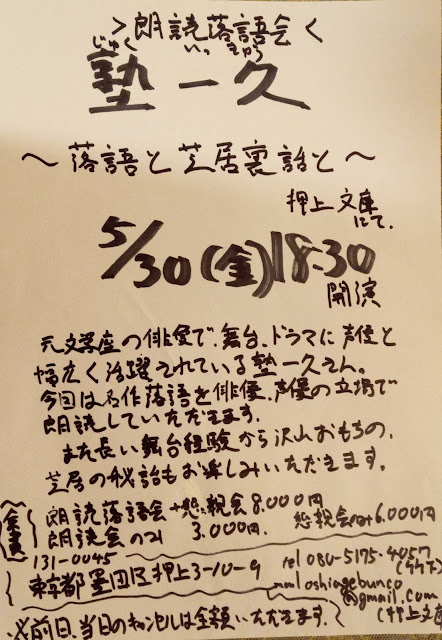 ＞朗読落語会＜
じゅく いっ きゅう
塾 一久
～落語と芝居裏話と～
押上文庫
にて.
5/30(金)18:30
開演
元文学座の俳優で、舞台、ドラマに声優と
幅広く活躍されている塾一久さん。
今回は名作落語を俳優、声優の立場で
朗読していただきます。
また長い舞台経験から沢山おもちの、
芝居の秘話もお楽しみいただきます。
会費
朗読落語会+懇親会8.000円 懇親会のみ6.000円
朗読会のみ 3.000円
131-0045
東京都墨田区押上3-10-9
tel 080-5175-4057
mail oshiagebunco
@gmail.com
(押上文庫)
※前日、当日のキャンセルは全額いただきます.